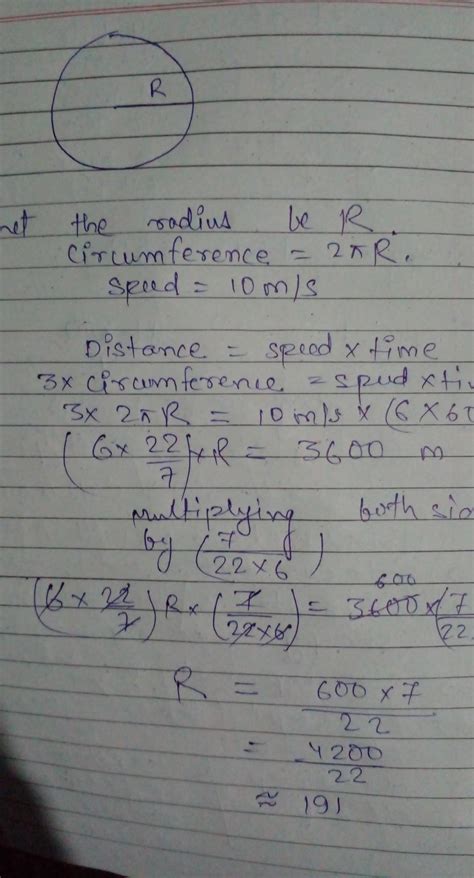 R
the radius be R.
Circumference = 2πR.
speed = 10 m/s
Distance = speed × time
3× circumference = speed × ti
3× 2πR = 10 m/s × (6 × 6
(6 × 22/7) × R = 3600 m
multiplying both si
by (7/22×6)
(6 × 22/7) R × (7/22×6) = 3600 × (7/22
600
R = 600 × 7/22
= 4200/22
≈ 191